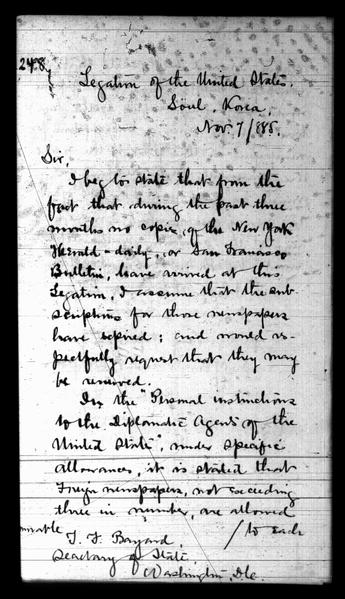 248
Legation of the United States.
Soul, Korea,
Nov. 7/885.
Sir,
I beg to state that from the
fact that during the past three
months no copies of the New York
Herald - daily, or San Francisco
Bulletin, have arrived at this
Legation, I assume that the sub-
scriptions for those newspapers
have expired; and would res-
pectfully request that they may
be renewed.
In the "Personal instructions
to the Diplomatic Agents of the
United States", under specific
allowances, it is stated that
Foreign newspapers, not exceeding
three in number, are allowed
/ to each
T. F. Bayard
Secretary of State
Washington, D.C.